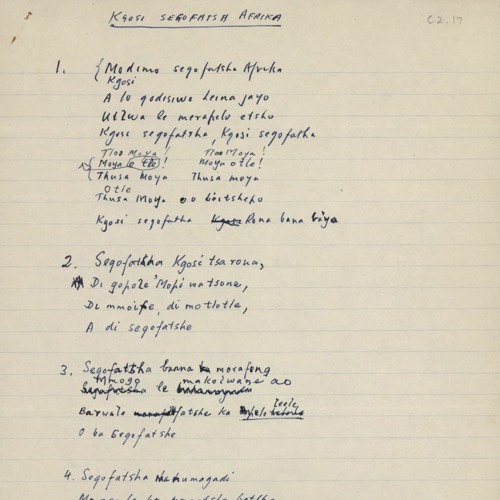 KGOSI SEGOFATSA AFRIKA
C2.17
1. {Modimo segofatsha Afrika
Kgosi
A lo godisiwe leina jayo
Utlwa le merapelo etsho
Kgosi segofatsha, Kgosi segofatha
Tloo Moya! Tloo Moya!
Moya o tle! Moya otle!
Thusa Moya Thusa moya
Otle
Thusa Moya oo boitshepo
Kgosi segofatha Kgosi Rona bana
2. Segofatsha Kgosi tsa rona,
Di gopole Mopi wa tsone,
Di mmoife, di motlotle,
A di segofatshe
3. Segofatsha banna morafeng
Mmogo makolwane ao
Segofatsha le
Barwale fatshe ka
O ba segofatshe
4. Segofatsha kumagadi